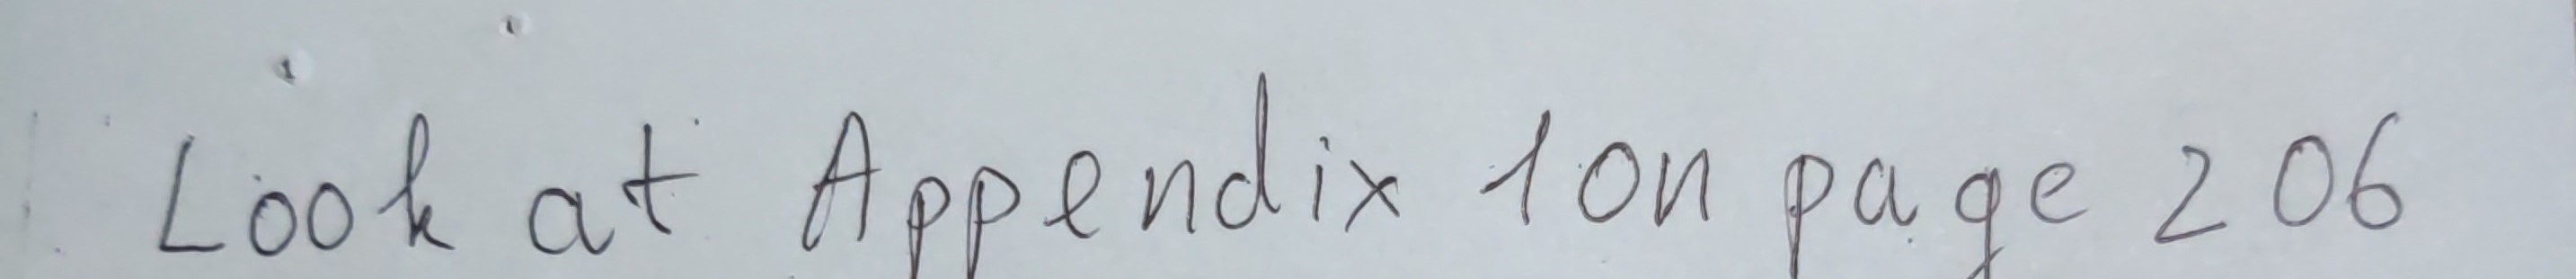 Look at Appendix 1 on page 206